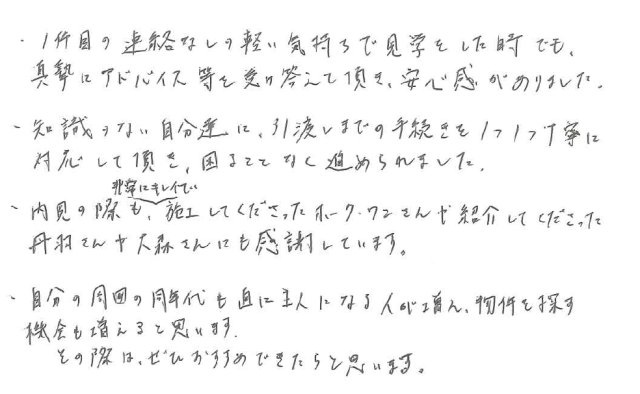 ・1件目の連絡なしの軽い気持ちで見学をした時でも、
真摯にアドバイス等を受け答えて頂き、安心感がありました。
・知識のない自分達に、引渡しまでの手続きを1つ1つ丁寧に
対応して頂き、困ることなく進められました。
非常にキレイで
・内見の際も、施工してくださったホーク・ワンさんや紹介してくださった
丹羽さんや大森さんにも感謝しています。
・自分の周囲の同年代も直に主人になる人が増え、物件を探す
機会も増えると思います。
その際は、ぜひおすすめできたらと思います。